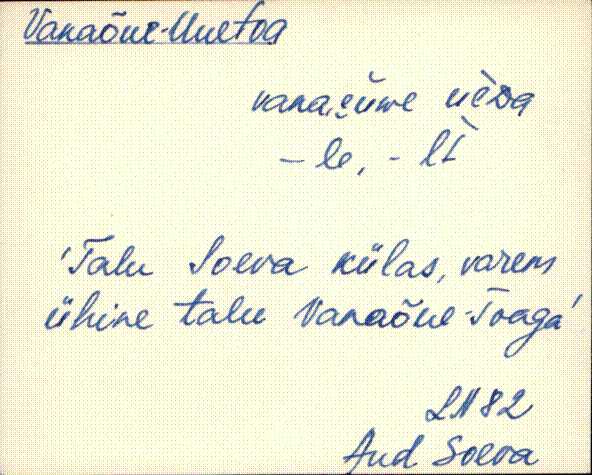 Vanaõue-Uuetoa
vana,ȩüwe
-le, -
'Talu Soeva külas, varem
ühine talu Vanaõue-Toaga'
82
And Soeva